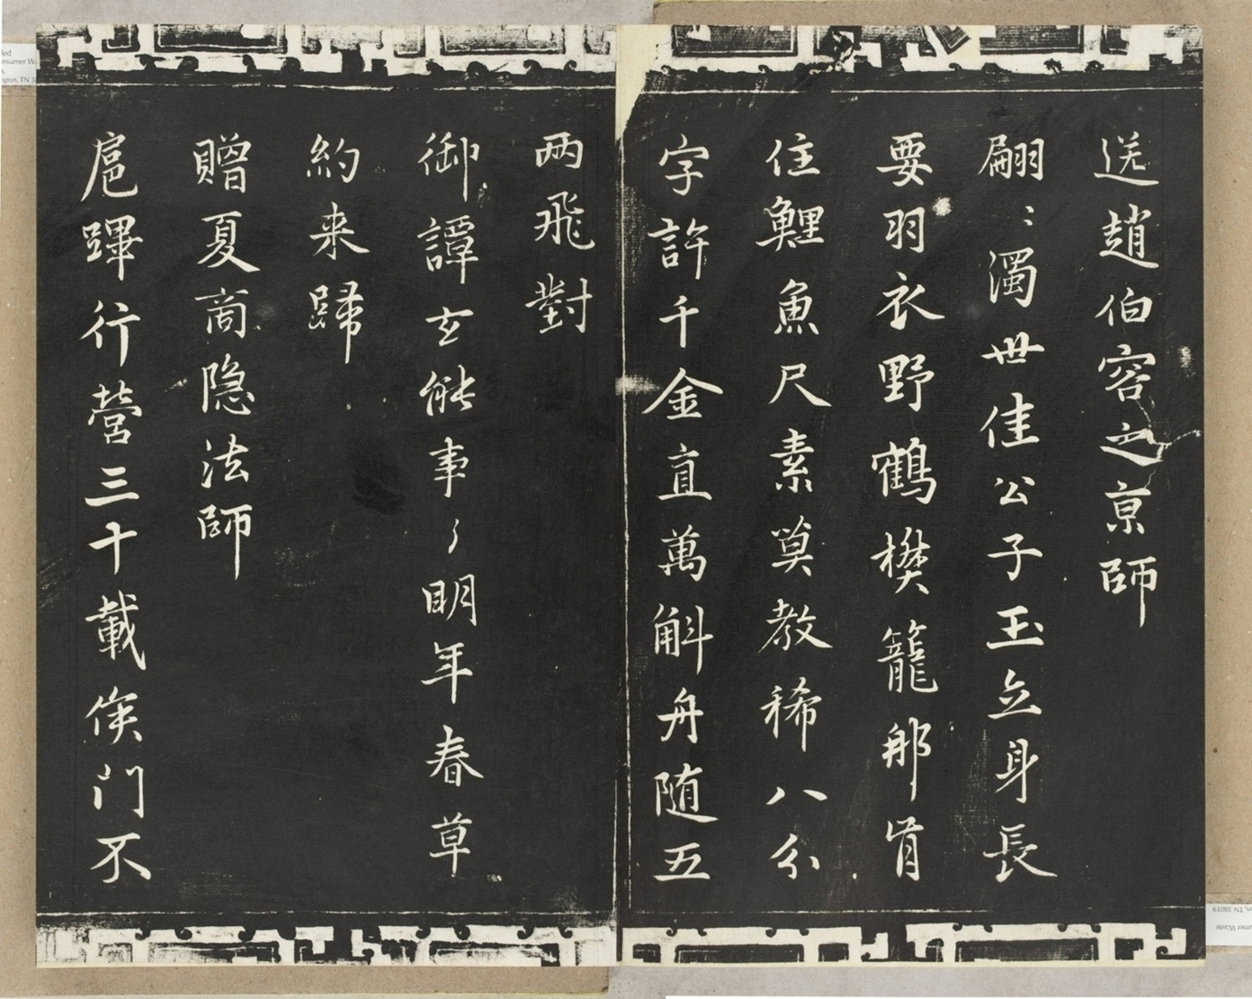 送趙伯容之京師
翩〻濁世佳公子玉立身長
要羽衣野鶴樊籠那肯
住鯉魚尺素莫教稀八分
字許千金直萬斛舟隨五
两飛對
御譚玄能事〻明年春草
約来歸
贈夏商隐法師
扈蹕行營三十載侯門不